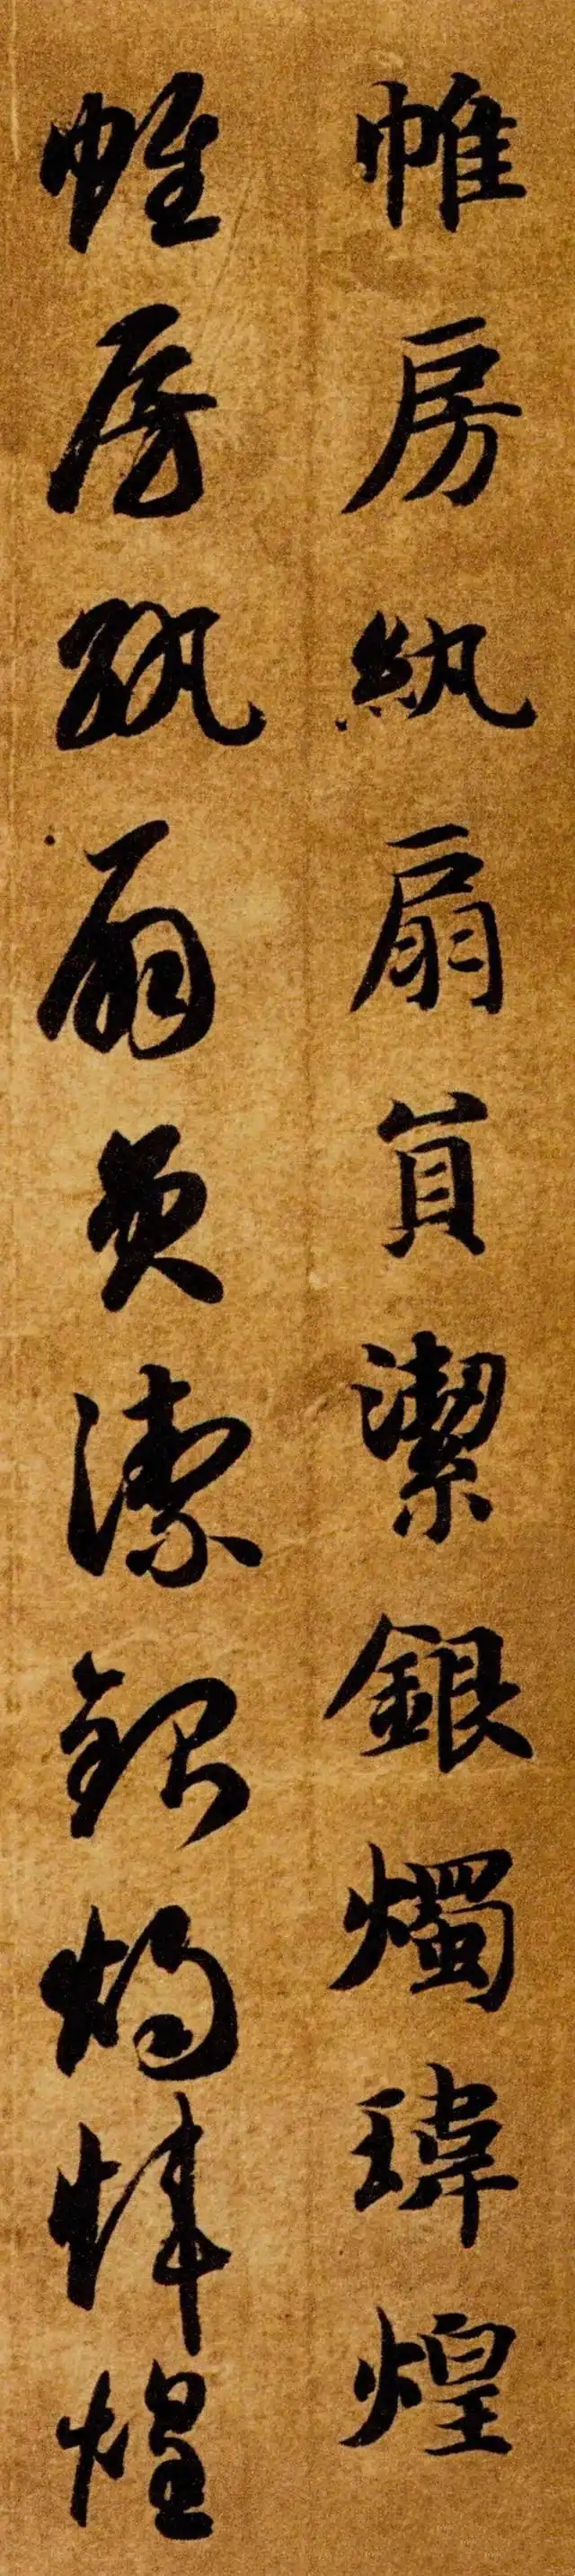 帷房紈扇員潔銀燭瑋煌
帷房紈扇員潔銀燭煒煌